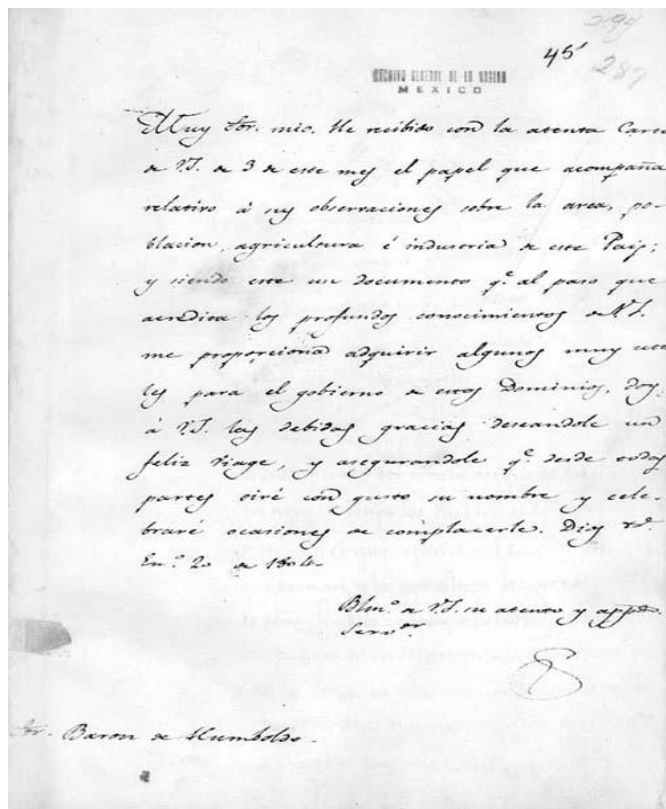 294
45
289
ARCHIVO GENERAL DE LA NACION
MEXICO
Muy Sor. mio. He recibido con la atenta Carta
de V.S. de 3 de este mes el papel que acompaña
relativo á sus observaciones sobre la area, po-
blacion, agricultura é industria de este Pais;
y siendo este un documento q.e al paso que
acredita los profundos conocimientos de V.S.
me proporciona adquirir algunos muy uti
les para el gobierno de estos Dominios, doy
á V.S. las debidas gracias deseandole un
feliz viage, y asegurandole q.e desde todas
partes oiré con gusto su nombre y cele-
braré ocasiones de complacerle. Dios &.a
En.o 20 de 1804.
Blm.o de V.S. su atento y
serv.or
Sor. Baron de Humboldt.